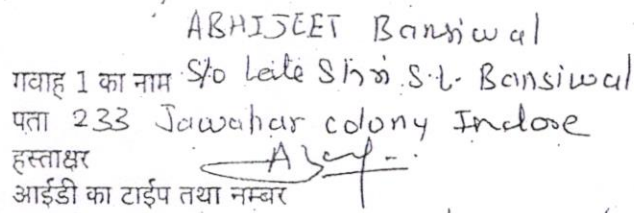 ABHIJEET Bansiwal
गवाह 1 का नाम S/o Late Shri S.L. Bansiwal
पता 233 Jawahar colony Indore
हस्ताक्षर
आईडी का टाईप तथा नम्बर